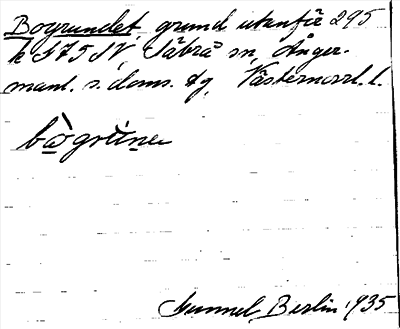 Bogrundet, grund utanför 295
k S75 SV, Säbrå sn, Ånger-
manl. s. doms. tg, Västernorrl. l.
bògrúne
Gunnel Berlin 1935